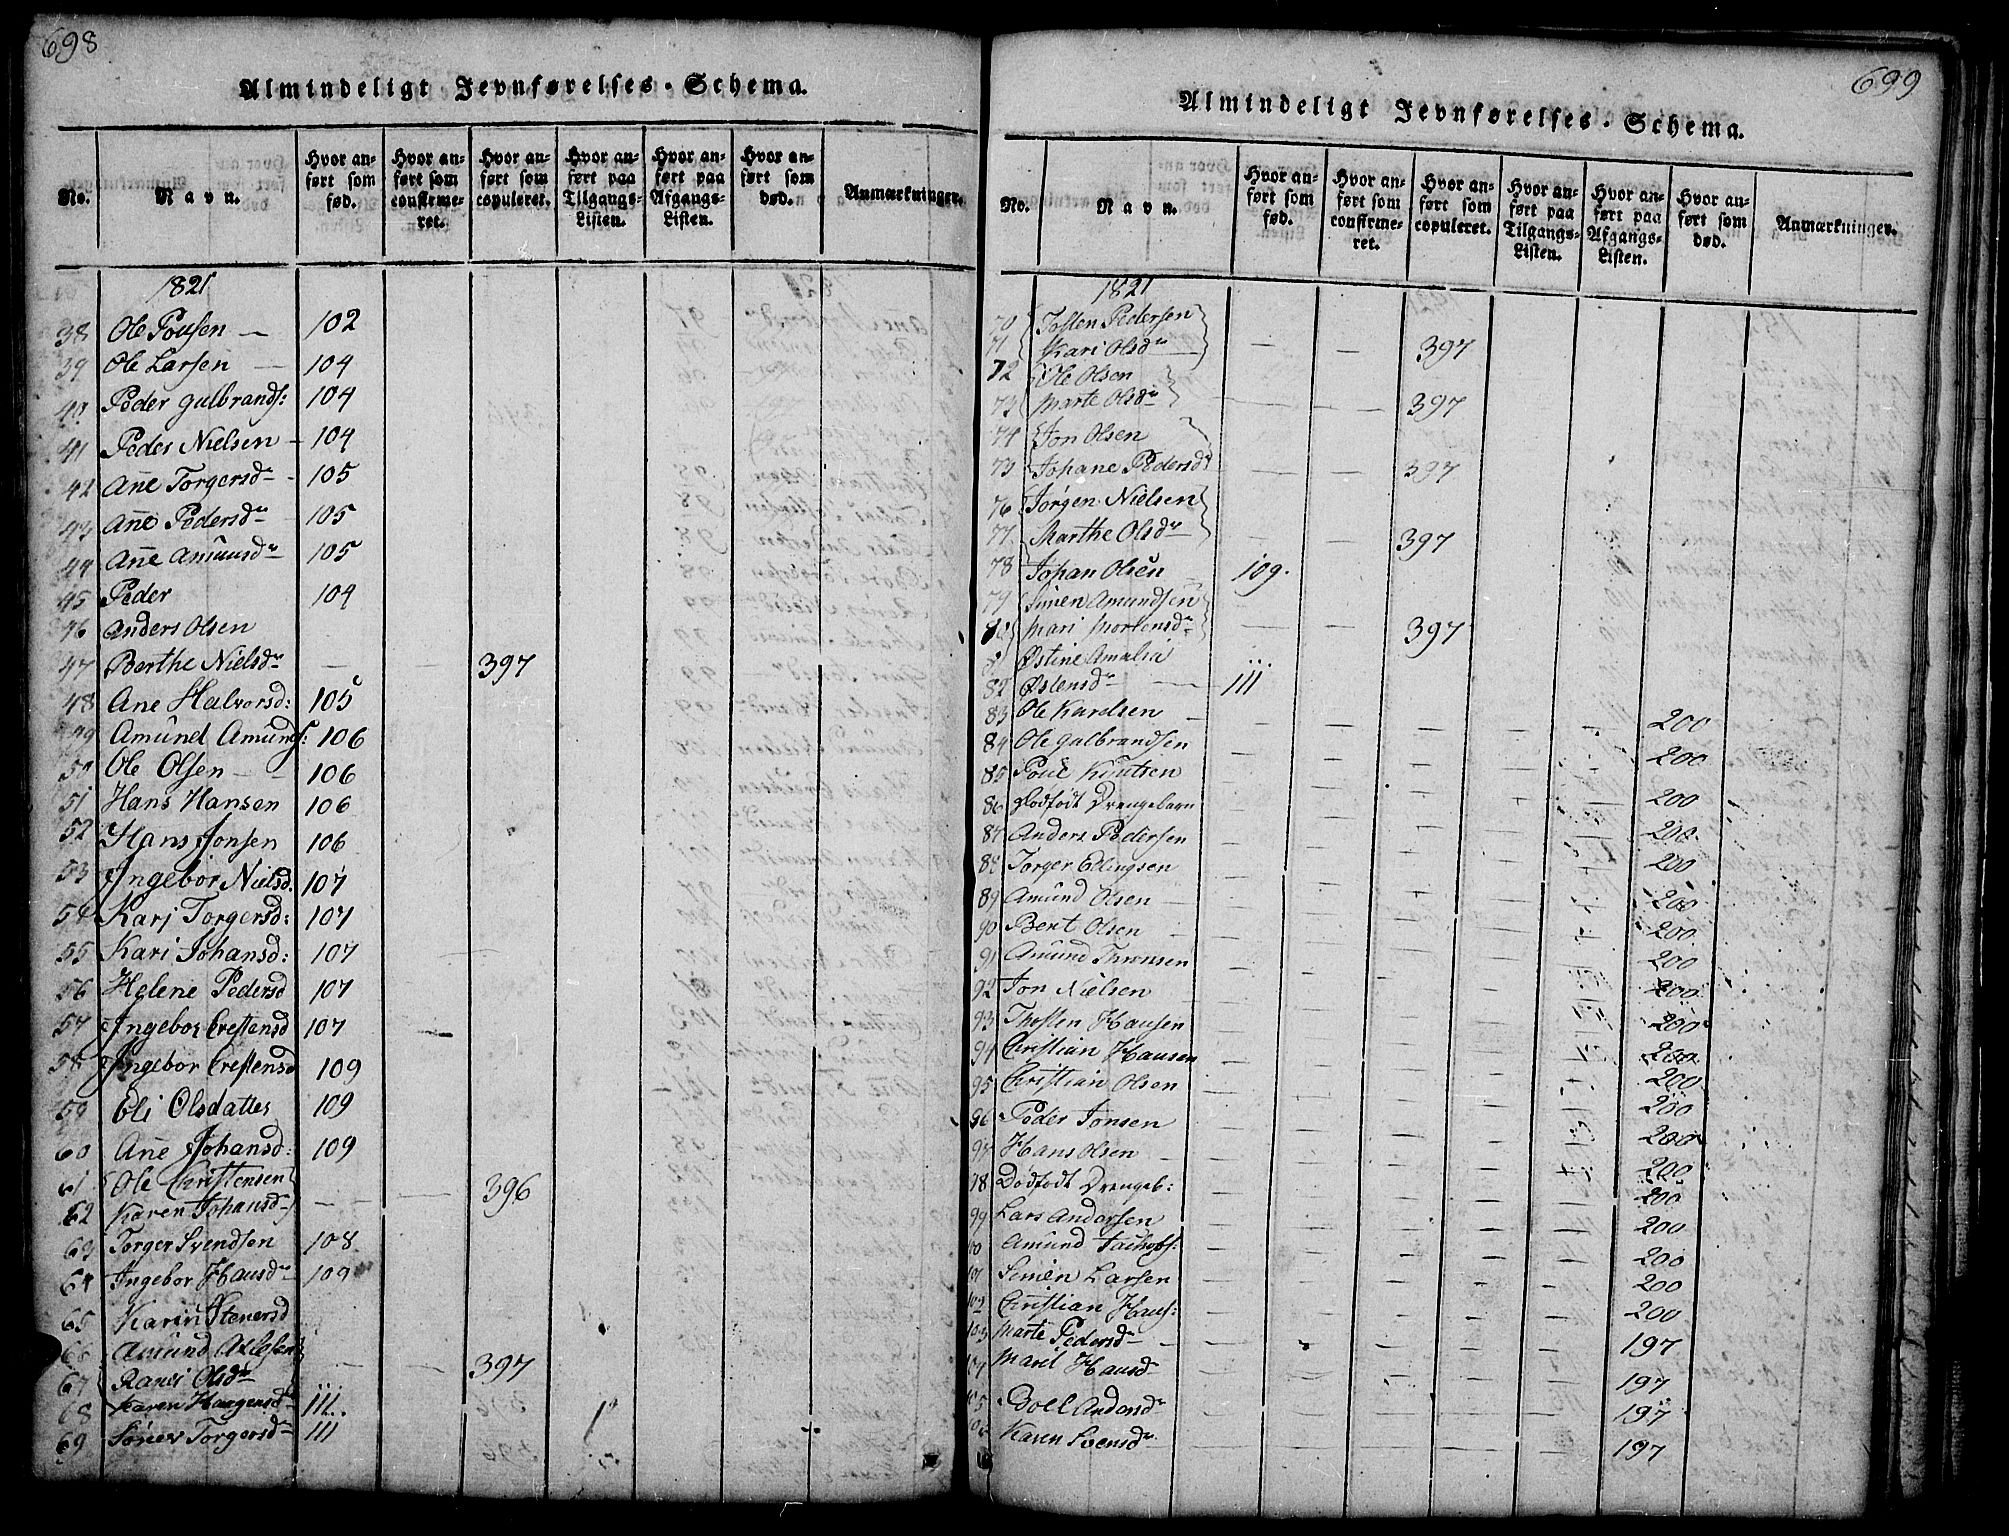 698
Almindeligt Jevnførelses-Schema.
No. Navn. Hvor anført som fød. Hvor anført som confirmeret. Hvor anført som copuleret. Hvor anført paa Tilgangs-Listen. Hvor anført paa Afgangs-Listen. Hvor anført som død. Anmærkninger.
1821
38 Ole Poulsen — 102
39 Ole Larsen — 104
40 Peder Gulbrands: 104
41 Peder Nielsen - 104
42 Ane Torgersdr - 105
43 Ane Pedersdr 105
44 Ane Amunsdr 105
45 Peder 104
46 Anders Olsen
47 Berthe Nielsdr — — 397
48 Ane Halvorsd: 105
49 Amund Amunds: 106
50 Ole Olsen - - 106
51 Hans Hansen 106
52 Hans Jonsen 106
53 Ingebor Nielsd. 107
54 Kari Torgersd: 107
55 Kari Johansd: 107
56 Helene Pedersd 107
57 Ingebor Crestensd 107
58 Ingebor Crestensd 109
59 Eli Olsdatter 109
60 Ane Johansd: 109
61 Ole Christensen
62 Karen Johansd — — 396
63 Torger Svendsen 108
64 Ingebor Hansdr 109
65 Karin Stenersd
66 Amund
67 Olsdr — — 397
68 Karen Haagensdr 111.
69 Torgersdr 111
699
Almindeligt Jevnførelses-Schema.
No. Navn. Hvor anført som fød. Hvor anført som confirmeret. Hvor anført som copuleret. Hvor anført paa Tilgangs-Listen. Hvor anført paa Afgangs-Listen. Hvor anført som død. Anmærkninger.
1821
70 Josten Pedersen
71 Kari Olsdr — — 397
72 Ole Olsen
73 Marte Olsdr — — 397
74 Jon Olsen
75 Johane Pedersdr — — 397
76 Jørgen Nielsen
77 Marthe Olsdr — — 397
78 Johan Olsen 109.
79 Simen Amundsen
80 Mari Mortensdr — — 397
81 Østine Amalia
82 Østensdr — 111
83 Ole Karelsen 200
84 Ole Gulbrandsen 200
85 Poul Knutsen 200
86 Dødfødt Drengebarn 200
87 Anders Pedersen 200
88 Torger Ellingsen 200
89 Amund Olsen 200
90 Bent Olsen 200
91 Amund Thronsen 200
92 Jon Nielsen 200
93 Thosten Hansen 200
94 Christian Hansen 200
95 Christian Olsen 200
96 Peder Jonsen 200
97 Hans Olsen 200
98 Dødfødt Drengeb: 200
99 Lars Andersen 200
100 Amund Jachobs: 200
101 Simen Larsen 200
102 Christian Hans: 200
103 Marte Pedersdr 197
104 Marit Hansdr 197
105 Boel Andersdr 197
106 Karen Svensdr 197